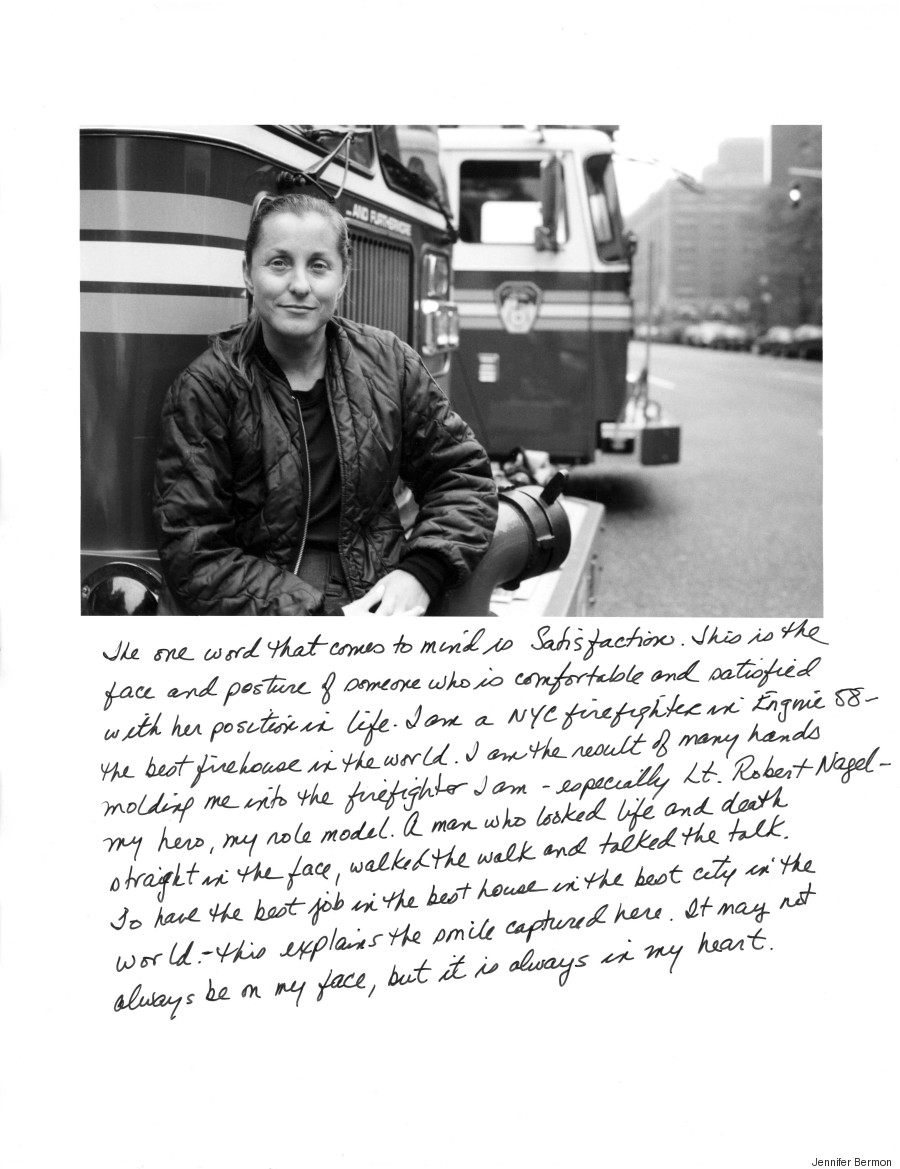 ...AND FURTHERMORE
The one word that comes to mind is Satisfaction. This is the
face and posture of someone who is comfortable and satisfied
with her position in life. I am a NYC firefighter in Engine 58-
the best firehouse in the world. I am the result of many hands
molding me into the firefighter I am - especially Lt. Robert Nagel -
my hero, my role model. A man who looked life and death
straight in the face, walked the walk and talked the talk.
To have the best job in the best house in the best city in the
world. - this explains the smile captured here. It may not
always be on my face, but it is always in my heart.
Jennifer Bermon